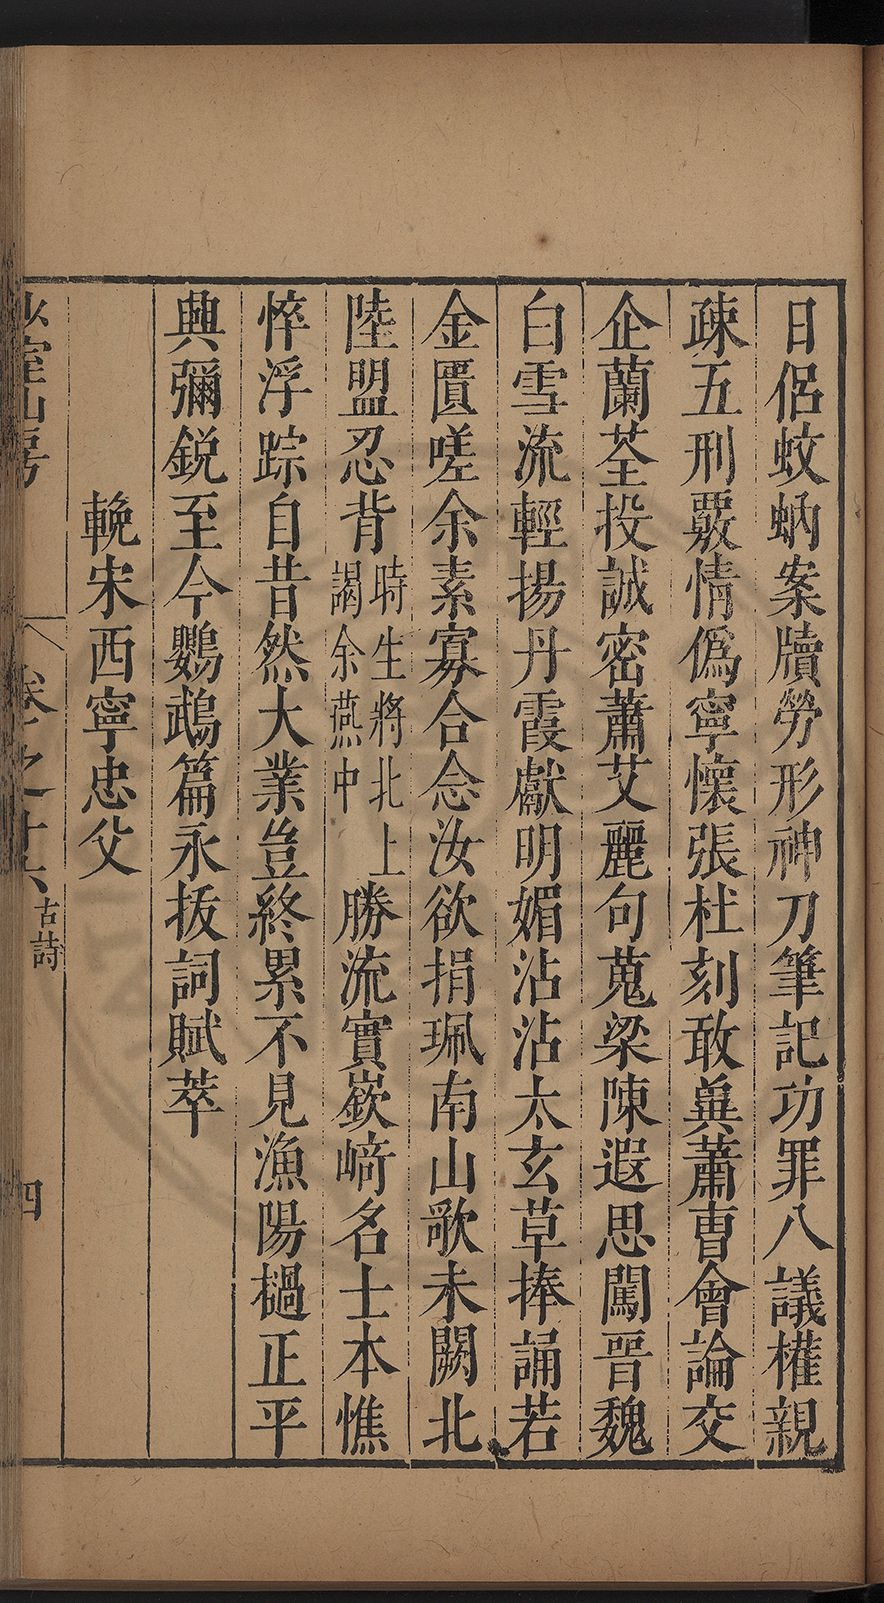 日侶蚊蚋案牘勞形神刀筆記功罪八議權親
疎五刑覈情僞寧懷張杜刻敢冀蕭曹會論交
企蘭荃投誠密蕭艾麗句蒐梁陳遐思闖晉魏
白雪流輕揚丹霞獻明媚沾沾太玄草捧誦若
金匱嗟余素寡合念汝欲捐珮南山歌未闕北
陸盟忍背時生將北上謁余燕中勝流實嶔崎名士本憔
悴浮踪自昔然大業豈終累不見漁陽檛正平
興彌銳至今鸚鵡篇永拔詞賦萃
輓宋西寧忠父
室山房 卷之十六 古詩 四